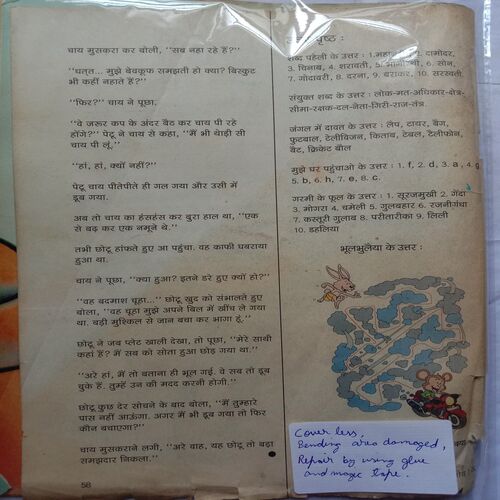 चाय मुसकरा कर बोली, ‘‘सब नहा रहे हैं?’’
‘‘धत्त... मुझे बेवकूफ समझती हो क्या? बिस्कुट
भी कहीं नहाते हैं?’’
‘‘फिर?’’ चाय ने पूछा.
‘‘वे जरूर कप के अंदर बैठ कर चाय पी रहे
होंगे?’’ पेटू ने चाय से कहा, ‘‘मैं भी थोड़ी सी
चाय पी लूं.’’
‘‘हां, हां, क्यों नहीं?’’
पेटू चाय पीतेपीते ही गल गया और उसी में
डूब गया.
अब तो चाय का हंसहंस कर बुरा हाल था, ‘‘एक
से बढ़ कर एक नमूने थे.’’
तभी छोटू हांफते हुए आ पहुंचा. वह काफी घबराया
हुआ था.
चाय ने पूछा, ‘‘क्या हुआ? इतने डरे हुए क्यों हो?’’
‘‘वह बदमाश चूहा...’’ छोटू खुद को संभालते हुए
बोला, ‘‘वह चूहा मुझे अपने बिल में खींच ले गया
था. बड़ी मुश्किल से जान बचा कर भागा हूं.’’
छोटू ने जब प्लेट खाली देखा, तो पूछा, ‘‘मेरे साथी
कहां हैं? मैं सब को सोता हुआ छोड़ गया था.’’
‘‘अरे हां, मैं तो बताना ही भूल गई. वे सब तो डूब
चुके हैं. तुम्हें उन की मदद करनी होगी.’’
छोटू कुछ देर सोचने के बाद बोला, ‘‘मैं तुम्हारे
पास नहीं आऊंगा. अगर मैं भी डूब गया तो फिर
कौन बचाएगा?’’
चाय मुसकराने लगी, ‘‘अरे वाह, यह छोटू तो बड़ा
समझदार निकला.’’
58
पृष्ठ :
शब्द पहेली के उत्तर : 1.महानदी 2. दामोदर,
3. चिनाब, 4. शरावती, 5. भागीरथी 6. सोन,
7. गोदावरी, 8. दरना, 9. बराकर, 10. सरस्वती.
संयुक्त शब्द के उत्तर : लोक-मत-अधिकार-क्षेत्र-
सीमा-रक्षक-दल-नेता-गिरी-राज-तंत्र.
जंगल में दावत के उत्तर : लैंप, टायर, बैग,
फुटबाल, टेलीविजन, किताब, टेबल, टेलीफोन,
बैट, क्रिकेट बौल
मुझे घर पहुंचाओ के उत्तर : 1. f, 2. d, 3. a, 4. g
5. b, 6. h, 7. e, 8. c.
गरमी के फूल के उत्तर : 1. सूरजमुखी 2. गेंदा
3. मोगरा 4. चमेली 5. गुलबहार 6. रजनीगंधा
7. कस्तूरी गुलाब 8. परीतारीका 9. लिली
10. डहलिया
भूलभुलैया के उत्तर :
Cover less,
Bending area damaged,
Repair by using glue
and magic tape.